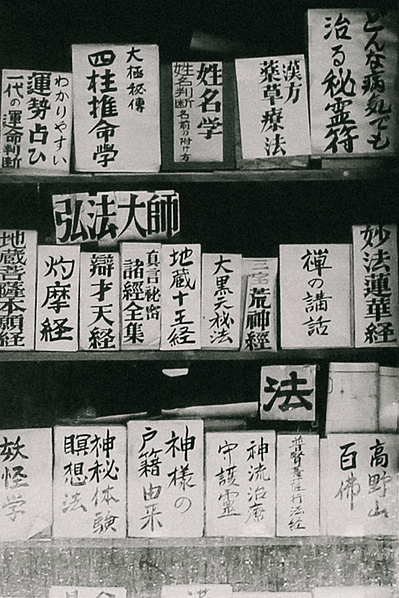 どんな病気でも
治る秘霊符
漢方
薬草療法
姓名学
姓名判断名前の附け方
大極秘傳
四柱推命学
わかりやすい
運勢占ひ
一代の運命判断
弘法大師
妙法蓮華経
禅の講話
三宝
荒神經
大黒天秘法
地蔵十王経
真言秘密
諸經全集
辯才天経
灼摩経
地蔵菩薩本願経
法
高野山
百佛
神流治療
守護霊
神様の
戸籍由来
神秘体験
瞑想法
妖怪学